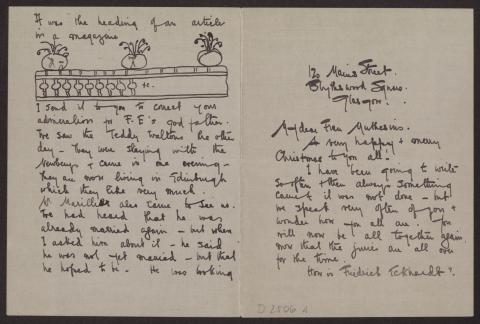 It was the heading of an article
in a magazine
etc.
I send it to you to correct your
admiration for F.E's god father.
We saw the Teddy Waltons the other
day - they were staying with the
Newberys & came in one evening -
They are now living in Edinburgh
which they like very much.
Mr Marillier also came to see us.
We had heard that he was
already married again - but when
I asked him about it - he said
he was not yet married - but that
he hoped to be. He was looking
120 Mains Street.
Blythswood Square
Glasgow.
My dear Frau Muthesius.
A very happy & merry
Christmas to you all.
I have been going to write
so often & then always something
came & it was not done - but
we speak very often of you &
wonder how you all are. You
will now be all together again
now that the juries are all over
for the time.
How is Fredrich Eckhardt?
D 2506 A